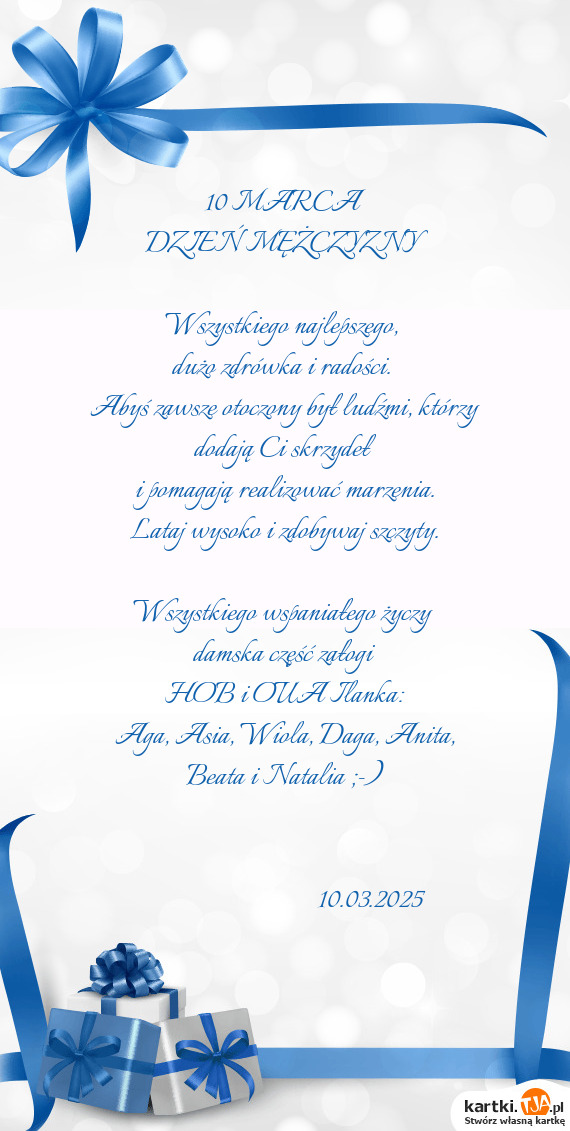 10 MARCA
DZIEŃ MĘŻCZYZNY
Wszystkiego najlepszego,
dużo zdrówka i radości.
Abyś zawszę otoczony był ludźmi, którzy
dodają Ci skrzydeł
i pomagają realizować marzenia.
Lataj wysoko i zdobywaj szczyty.
Wszystkiego wspaniałego życzy
damska część załogi
HOB i OUA Ilanka:
Aga, Asia, Wiola, Daga, Anita,
Beata i Natalia ;-)
10.03.2025
kartki.TJA.pl
Stwórz własną kartkę